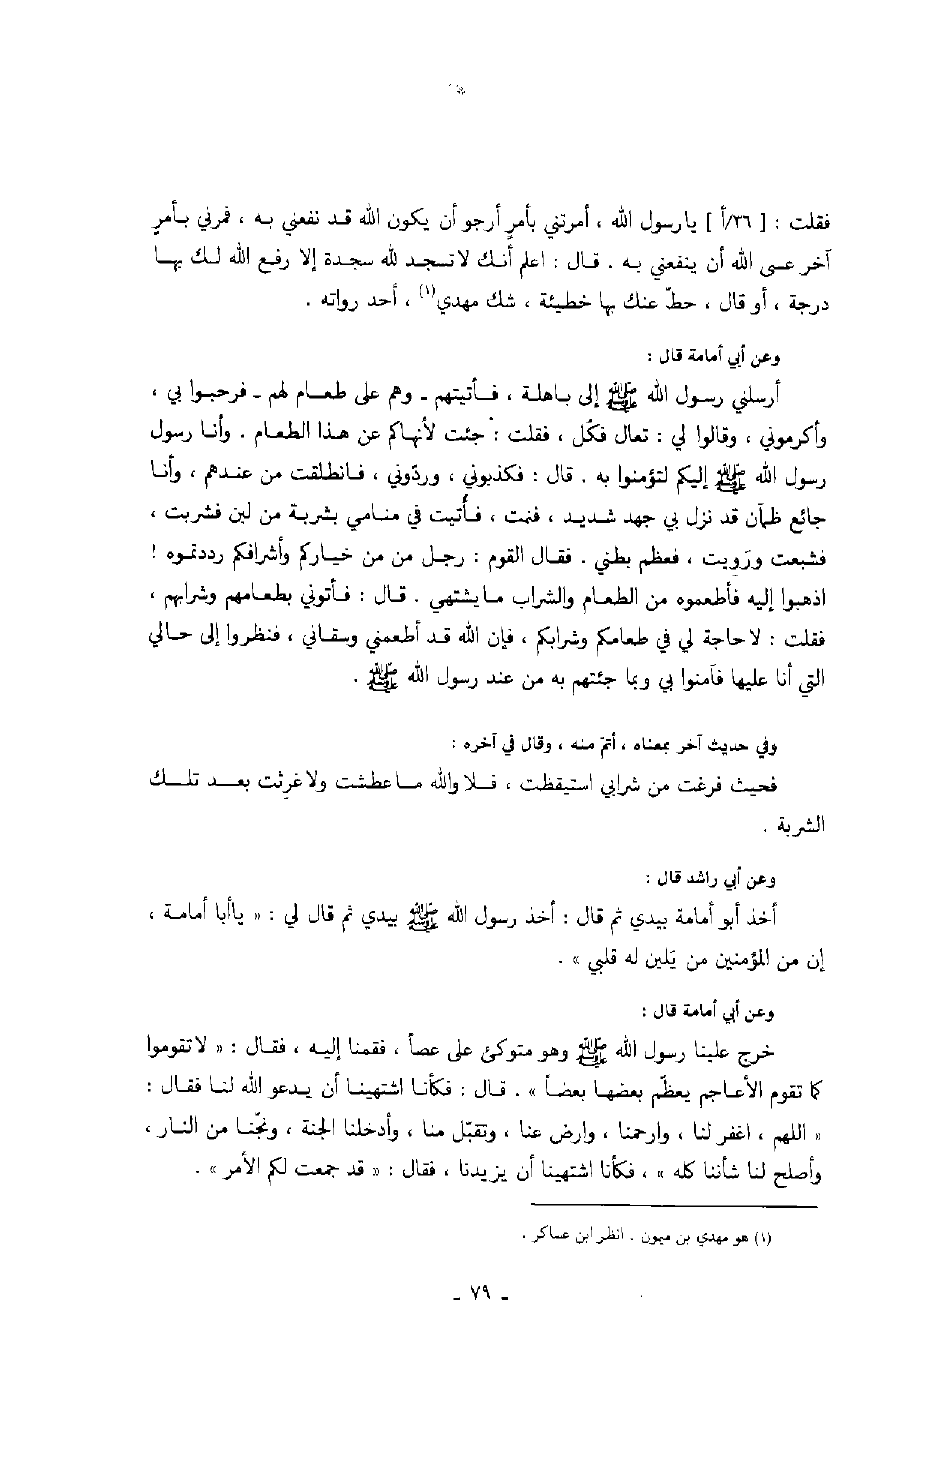 فقلت : [ ٣٦/أ ] يارسول الله ، أمرتني بأمرٍ أرجو أن يكون الله قد نفعني به ، فمرني بأمرٍ
آخر عسى الله أن ينفعني به . قال : اعلم أنك لاتسجد لله سجدة إلا رفع الله لك بها
درجة ، أو قال ، حطّ عنك بها خطيئة ، شك مهدي(١) ، أحد رواته .
وعن أبي أمامة قال :
أرسلني رسول الله ﷺ إلى باهلة ، فأتيتهم ـ وهم على طعام لهم ـ فرحبوا بي ،
وأكرموني ، وقالوا لي : تعال فكُل ، فقلت : جئت لأنهاكم عن هذا الطعام . وأنا رسول
رسول الله ﷺ إليكم لتؤمنوا به . قال : فكذبوني ، وردّوني ، فانطلقت من عندهم ، وأنا
جائع ظمآن قد نزل بي جهد شديد ، فنمت ، فأُتيت في منامي بشربة من لبن فشربت ،
فشبعت ورَويت ، فعظم بطني . فقال القوم : رجل من من خياركم وأشرافكم رددتموه !
اذهبوا إليه فأطعموه من الطعام والشراب مايشتهي . قال : فأتوني بطعامهم وشرابهم ،
فقلت : لاحاجة لي في طعامكم وشرابكم ، فإن الله قد أطعمني وسقاني ، فنظروا إلى حالي
التي أنا عليها فآمنوا بي وبما جئتهم به من عند رسول الله ﷺ .
وفي حديث آخر بمعناه ، أتمّ منه ، وقال في آخره :
فحيث فرغت من شرابي استيقظت ، فلا والله ماعطشت ولاغرثت بعد تلك
الشربة .
وعن أبي راشد قال :
أخذ أبو أمامة بيدي ثم قال : أخذ رسول الله ﷺ بيدي ثم قال لي : « ياأبا أمامة ،
إن من المؤمنين من يَلين له قلبي » .
وعن أبي أمامة قال :
خرج علينا رسول الله ﷺ وهو متوكئ على عصاً ، فقمنا إليه ، فقال : « لاتقوموا
كما تقوم الأعاجم يعظّم بعضها بعضاً » . قال : فكأنا اشتهينا أن يدعو الله لنا فقال :
« اللهم ، اغفر لنا ، وارحمنا ، وارض عنا ، وتقبّل منا ، وأدخلنا الجنة ، ونجّنا من النار ،
وأصلح لنا شأننا كله » ، فكأنا اشتهينا أن يزيدنا ، فقال : « قد جمعت لكم الأمر » .
(١) هو مهدي بن ميمون . انظر ابن عساكر .
ـ ٧٩ ـ